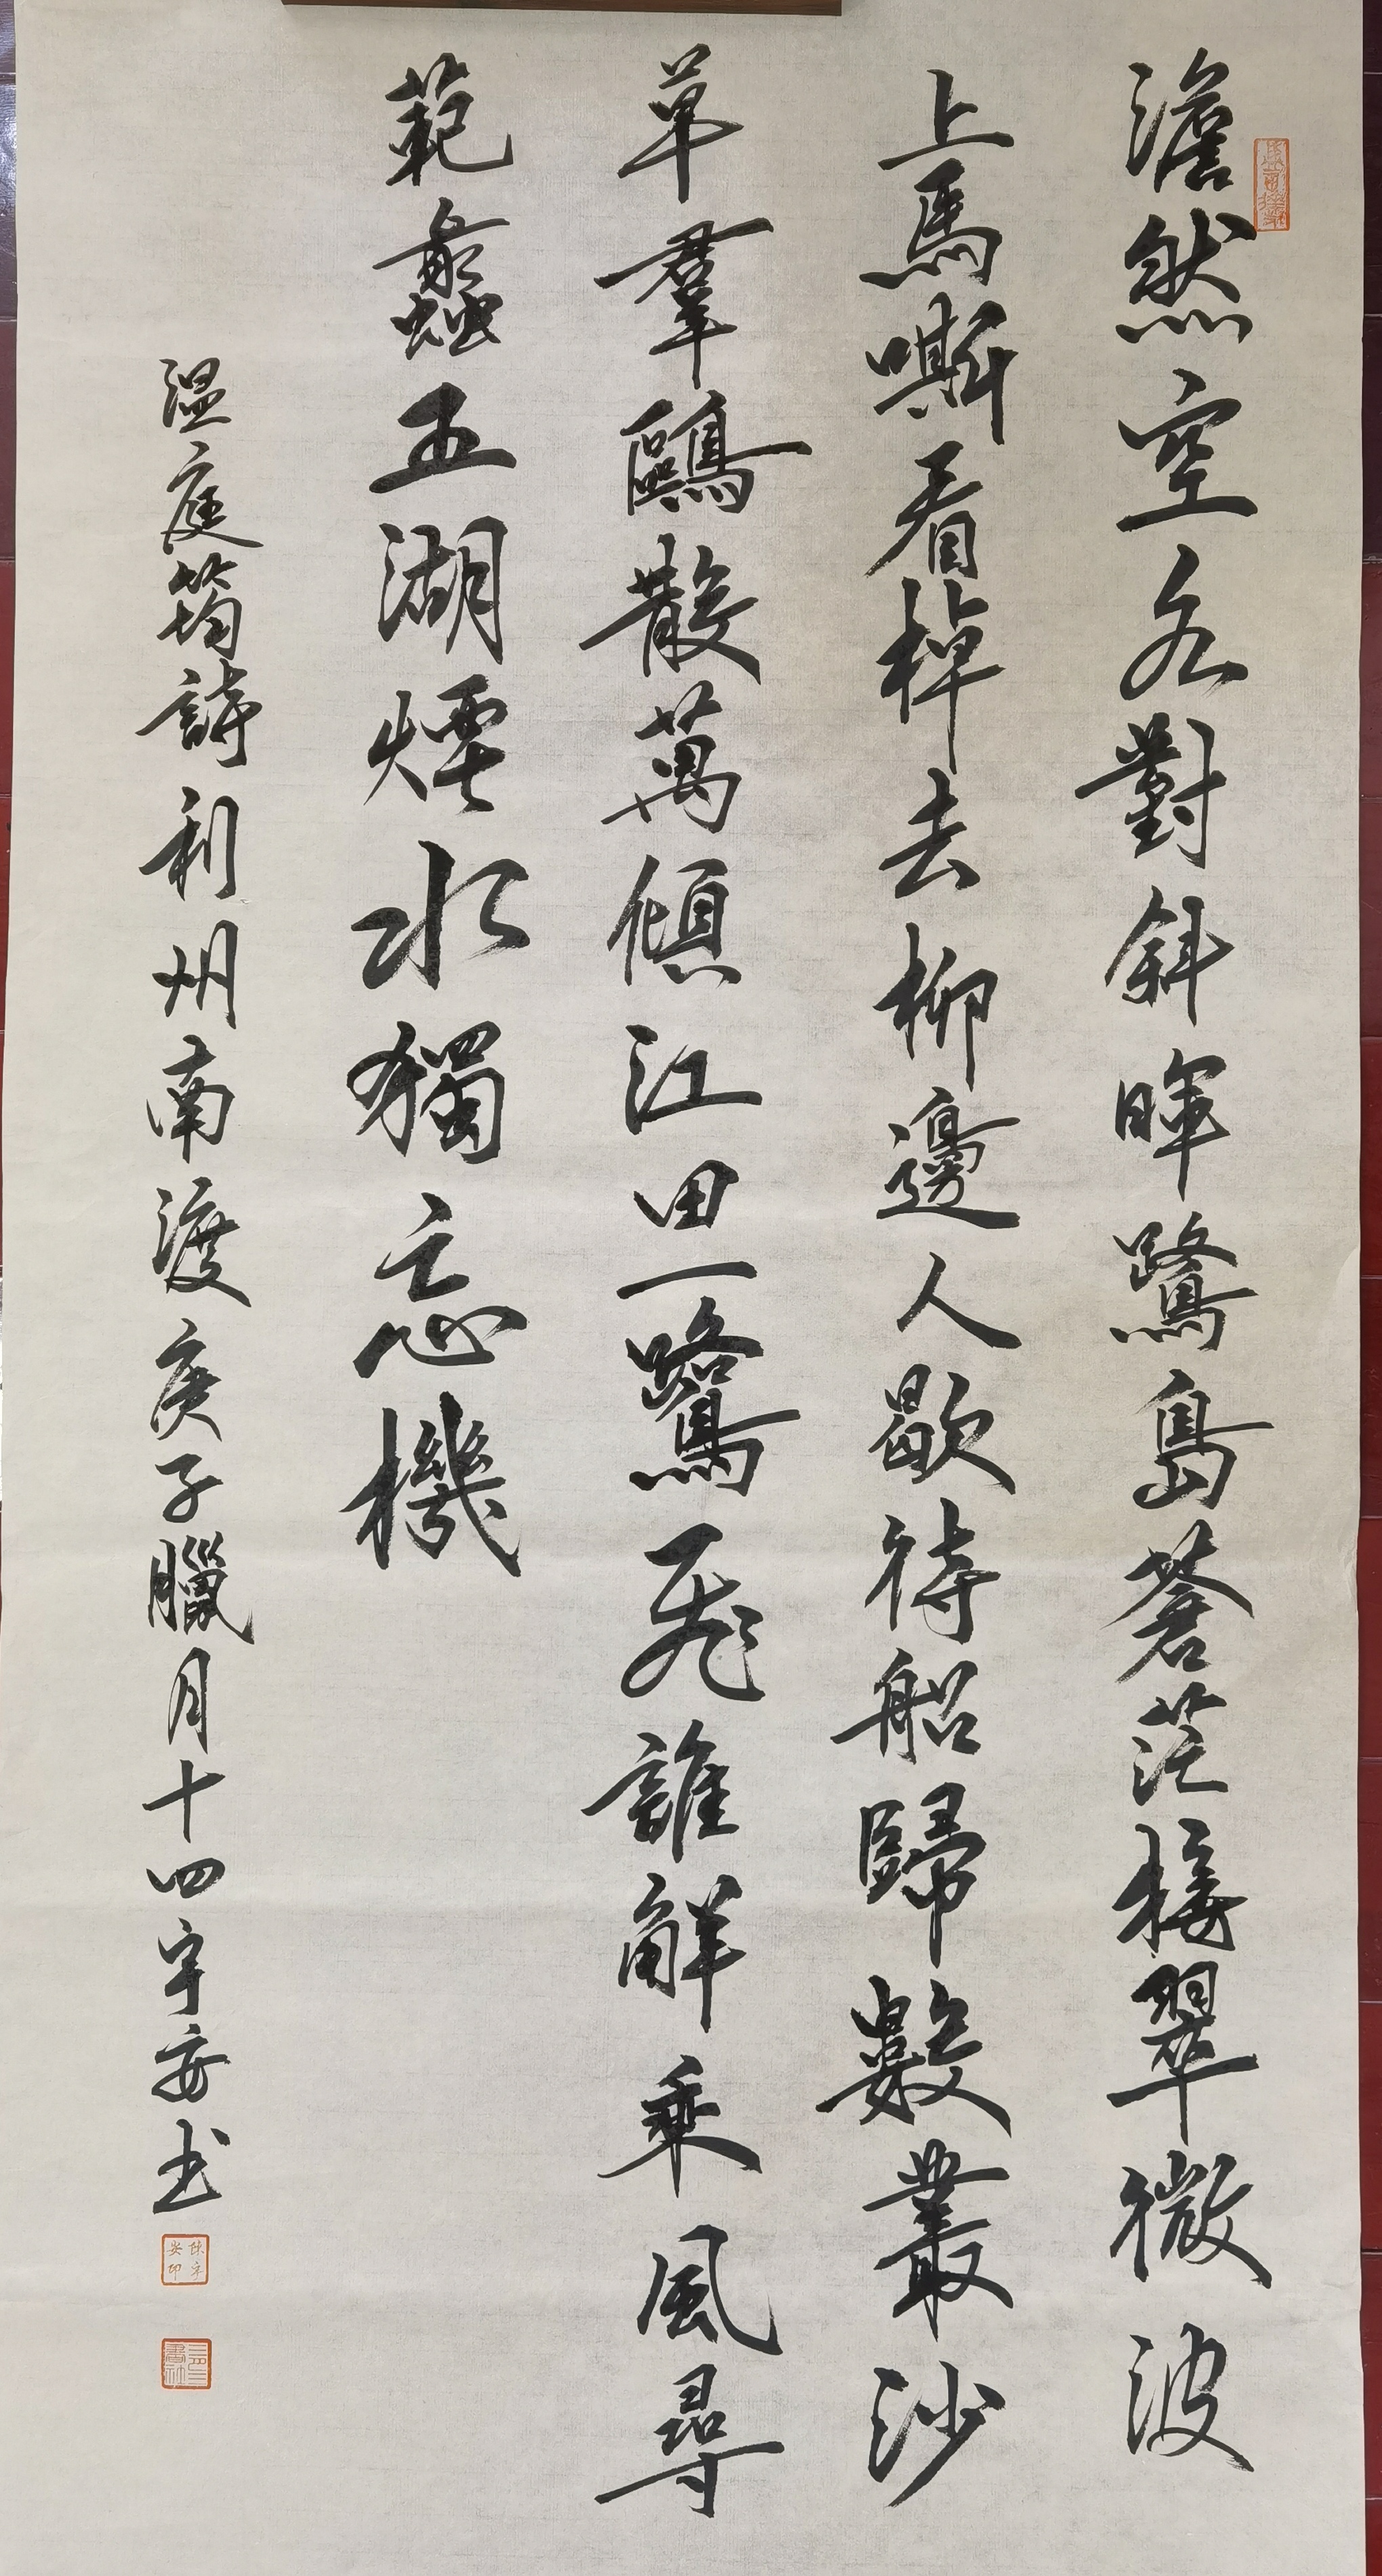 澹然空水對斜暉鷺島蒼茫接翠微波
上馬嘶看棹去柳邊人歇待船歸數叢沙
草羣鷗散萬傾江田一鷺飛誰解乘風尋
範蠡五湖煙水獨忘機
温庭筠詩利州南渡庚子臘月十四宇安书